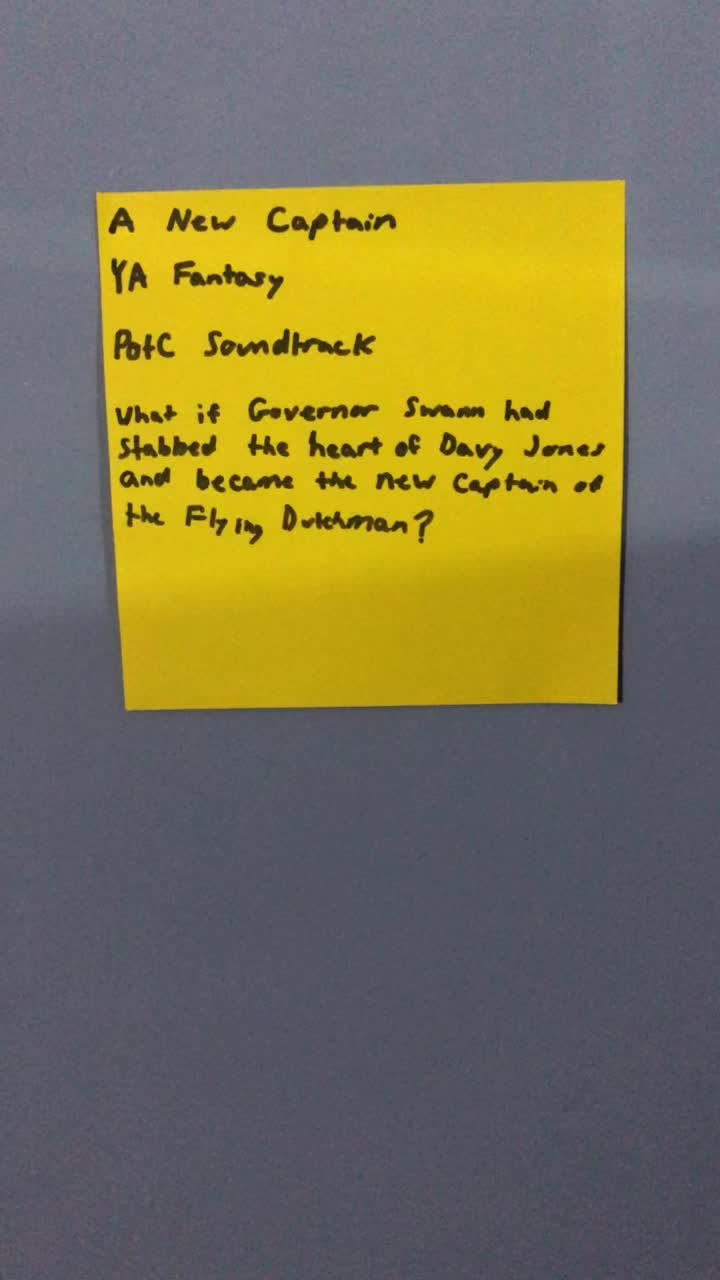 A New Captain
YA Fantasy
PotC Soundtrack
What if Governor Swann had
stabbed the heart of Davy Jones
and became the new Captain of
the Flying Dutchman?